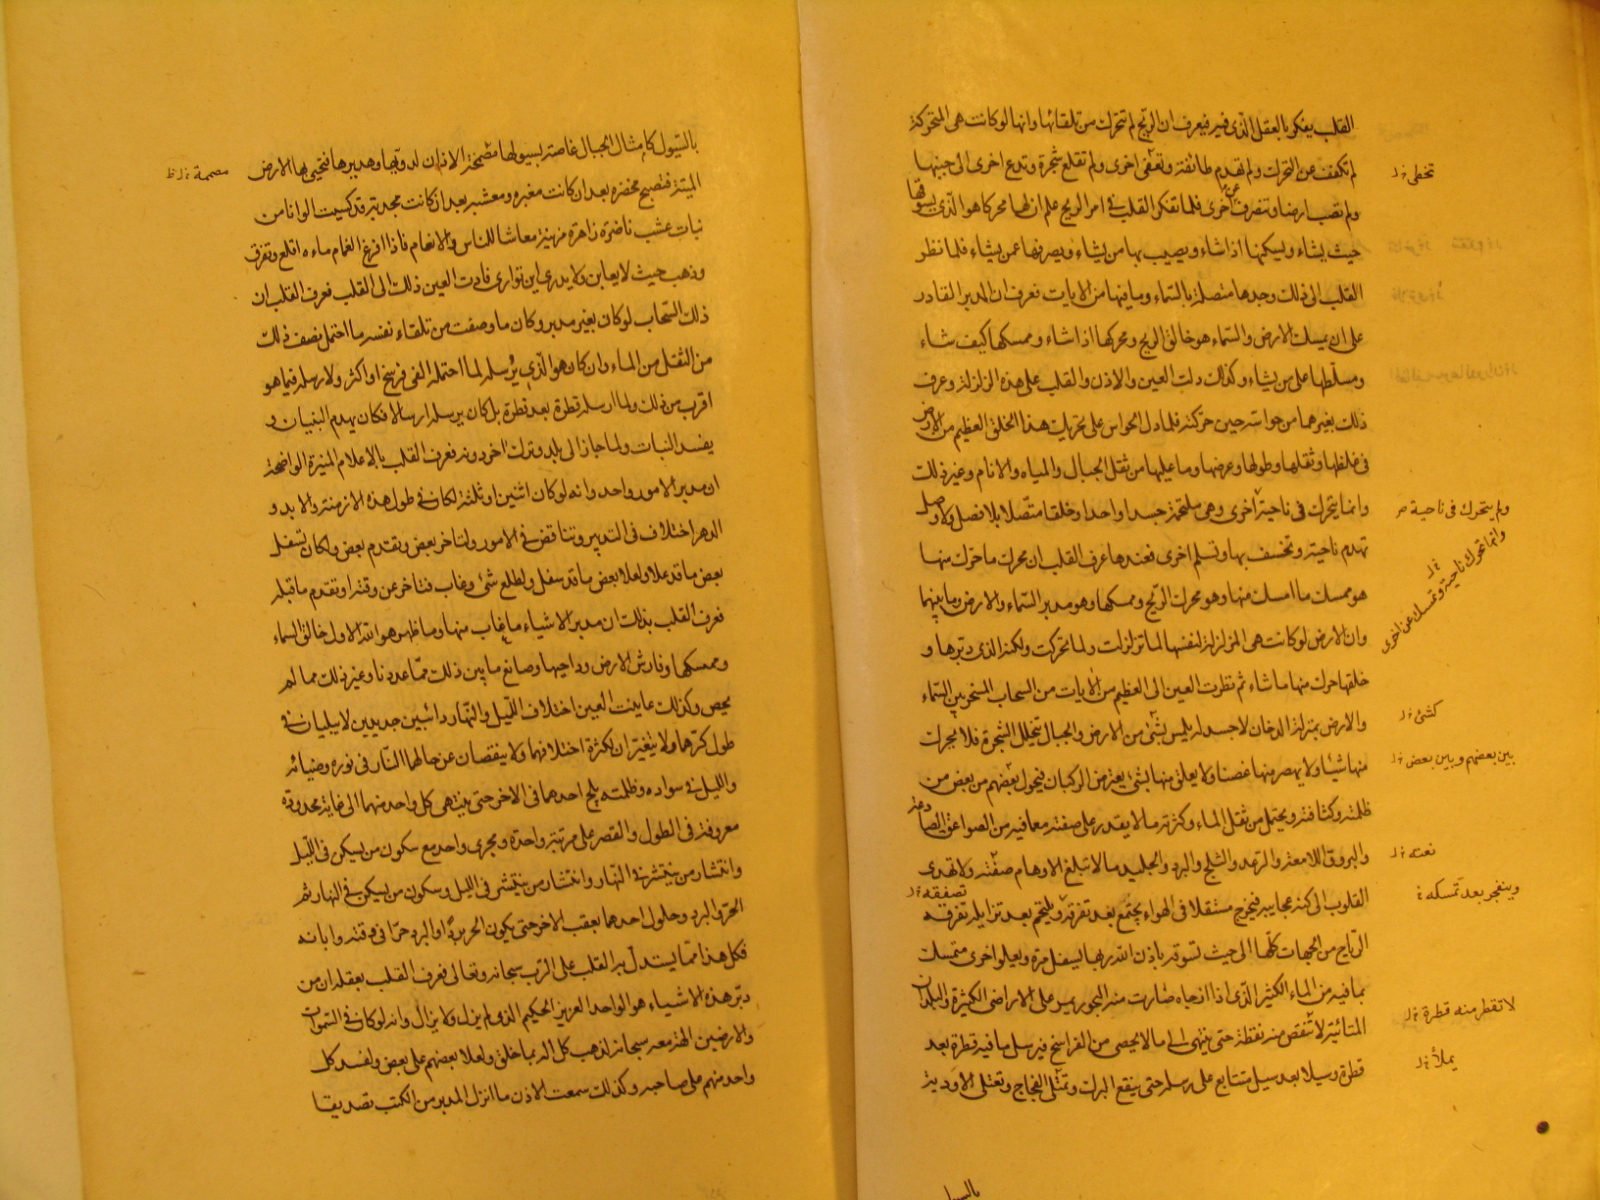 القلب يفكر بالعقل الذي فيه فيعرف ان الريح لم تتحرك من تلقائها وانها لو كانت هي المتحركة
لم تكفف عن التحرك ولم تهدم طائفة وتعفى اخرى ولم تقلع شجرة وتدع اخرى الى جنبها
تخطى
ولم تصب ارضا وتنصرف عن اخرى فلما تفكر القلب في امر الريح علم ان لها محركا هو الذي يسوقها
حيث يشاء ويسكنها اذا شاء ويصيب بها من يشاء ويصرفها عمن يشاء فلما نظر
القلب الى ذلك وجدها متصلة بالسماء وما فيها من الايات فعرف ان المدبر القادر
على ان يمسك الارض والسماء هو خالق الريح ومحركها اذا شاء وممسكها كيف شاء
ومسلطها على من يشاء وكذلك دلت العين والاذن والقلب على هذه الزلزلة وعرف
ذلك بغيرهما من حواسه حين حركته فلما دل الحواس على تحريك هذا الخلق العظيم من الارض
في غلظها وثقلها وطولها وعرضها وما عليها من ثقل الجبال والمياه والانام وغير ذلك
وانما يتحرك في ناحية اخرى وهي ملتحمة جسدا واحدا وخلقا متصلا بلا فصل ولا وصل
ولم يتحرك في ناحية
تهدم ناحية وتخسف بها وتسلم اخرى فعندها عرف القلب ان محرك ما حرك منها
وانما تحرك ناحية وتمسك عن اخرى
هو ممسك ما امسك منها وهو محرك الريح وممسكها وهو مدبر السماء والارض وما بينهما
وان الارض لو كانت هي المزلزلة لنفسها لما تزلزلت ولما تحركت ولكنه الذي دبرها و
خلقها حرك منها ما شاء ثم نظرت العين الى العظيم من الايات من السحاب المسخر بين السماء
والارض بمنزلة الدخان لا جسد له يلمس بشئ من الارض والجبال يتخلل الشجرة فلا يحرك
كشئ
منها شيئا ولا يهصر منها غصنا ولا يعلق منها بشئ يعترض الركبان فيحول بعضهم من بعض من
بين بعضهم وبين بعض
ظلمته وكثافته ويحتمل من ثقل الماء وكثرته ما لا يقدر على صفته مع ما فيه من الصواعق الصادعة
والبروق اللامعة والرعد والثلج والبرد والجليد ما لا تبلغ الاوهام صفته ولا تهتدى
نعته
القلوب الى كنه عجايبه فيخرج مستقلا في الهواء يجتمع بعد تفرقه ويلتحم بعد تزايله تفرقه
تصفقه
وينفجر بعد تمسكه
الرياح من الجهات كلها الى حيث تسوقه باذن الله ربها يسفل مرة ويعلو اخرى متمسك
بما فيه من الماء الكثير الذي اذا ازجاه صارت منه البحور يمر على الاراضي الكثيرة والبلدان
المتنائية لا تنقص منه نقطة حتى ينتهى الى ما لا يحصى من الفراسخ فيرسل ما فيه قطرة بعد
لا تقطر منه قطرة
قطرة وسيلا بعد سيل متتابع على رسله حتى ينقع البرك وتمتلى الفجاج وتعتلى الاودية
يملأ
بالسيول
بالسيول كامثال الجبال غاصة بسيولها مصمخة الاذان لدويها وهديرها فتحيى بها الارض
مصمة
الميتة فتصبح مخضرة بعد ان كانت مغبرة ومعشبة بعد ان كانت مجدبة قد كسيت الوانا من
نبات عشب ناضرة زاهرة مزينة معاشا للناس والانعام فاذا افرغ الغمام ماءه اقلع وتفرق
وذهب حيث لا يعاين ولا يدرى اين توارى فادت العين ذلك الى القلب فعرف القلب ان
ذلك السحاب لو كان بغير مدبر وكان ما وصفت من تلقاء نفسه ما احتمل نصف ذلك
من الثقل من الماء وان كان هو الذي يرسله لما احتمله الفى فرسخ او اكثر ولارسله فيما هو
اقرب من ذلك ولما ارسله قطرة بعد قطرة بل كان يرسله ارسالا فكان يهدم البنيان و
يفسد النبات ولما جاز الى بلد وترك اخر دونه فعرف القلب بالاعلام المنيرة الواضحة
ان مدبر الامور واحد وانه لو كان اثنين او ثلثة لكان في طول هذه الازمنة والابد و
الدهر اختلاف في التدبير وتناقض في الامور ولتاخر بعض وتقدم بعض ولكان تسفل
بعض ما قد علا ولعلا بعض ما قد سفل ولطلع شئ وغاب فتاخر عن وقته او تقدم ما قبله
فعرف القلب بذلك ان مدبر الاشياء ما غاب منها وما ظهر هو الله الاول خالق السماء
وممسكها وفارش الارض وداحيها وصانع ما بين ذلك مما عددنا وغير ذلك مما لم
يحص وكذلك عاينت العين اختلاف الليل والنهار دائبين جديدين لا يبليان في
طول كرهما ولا يتغيران لكثرة اختلافهما ولا ينقصان عن حالهما النهار في نوره وضيائه
والليل في سواده وظلمته يلج احدهما في الاخر حتى ينتهى كل واحد منهما الى غاية محدودة
معروفة في الطول والقصر على مرتبة واحدة ومجرى واحد مع سكون من يسكن في الليل
وانتشار من ينتشر في النهار وانتشار من ينتشر في الليل وسكون من يسكن في النهار ثم
الحر والبرد وحلول احدهما بعقب الاخر حتى يكون الحر بردا والبرد حرا في وقته وابانه
فكل هذا مما يستدل به القلب على الرب سبحانه وتعالى فعرف القلب بعقله ان من
دبر هذه الاشياء هو الواحد العزيز الحكيم الذي لم يزل ولا يزال وانه لو كان في السموات
والارضين الهة معه سبحانه لذهب كل اله بما خلق ولعلا بعضهم على بعض ولفسد كل
واحد منهم على صاحبه وكذلك سمعت الاذن ما انزل المدبر من الكتب تصديقا